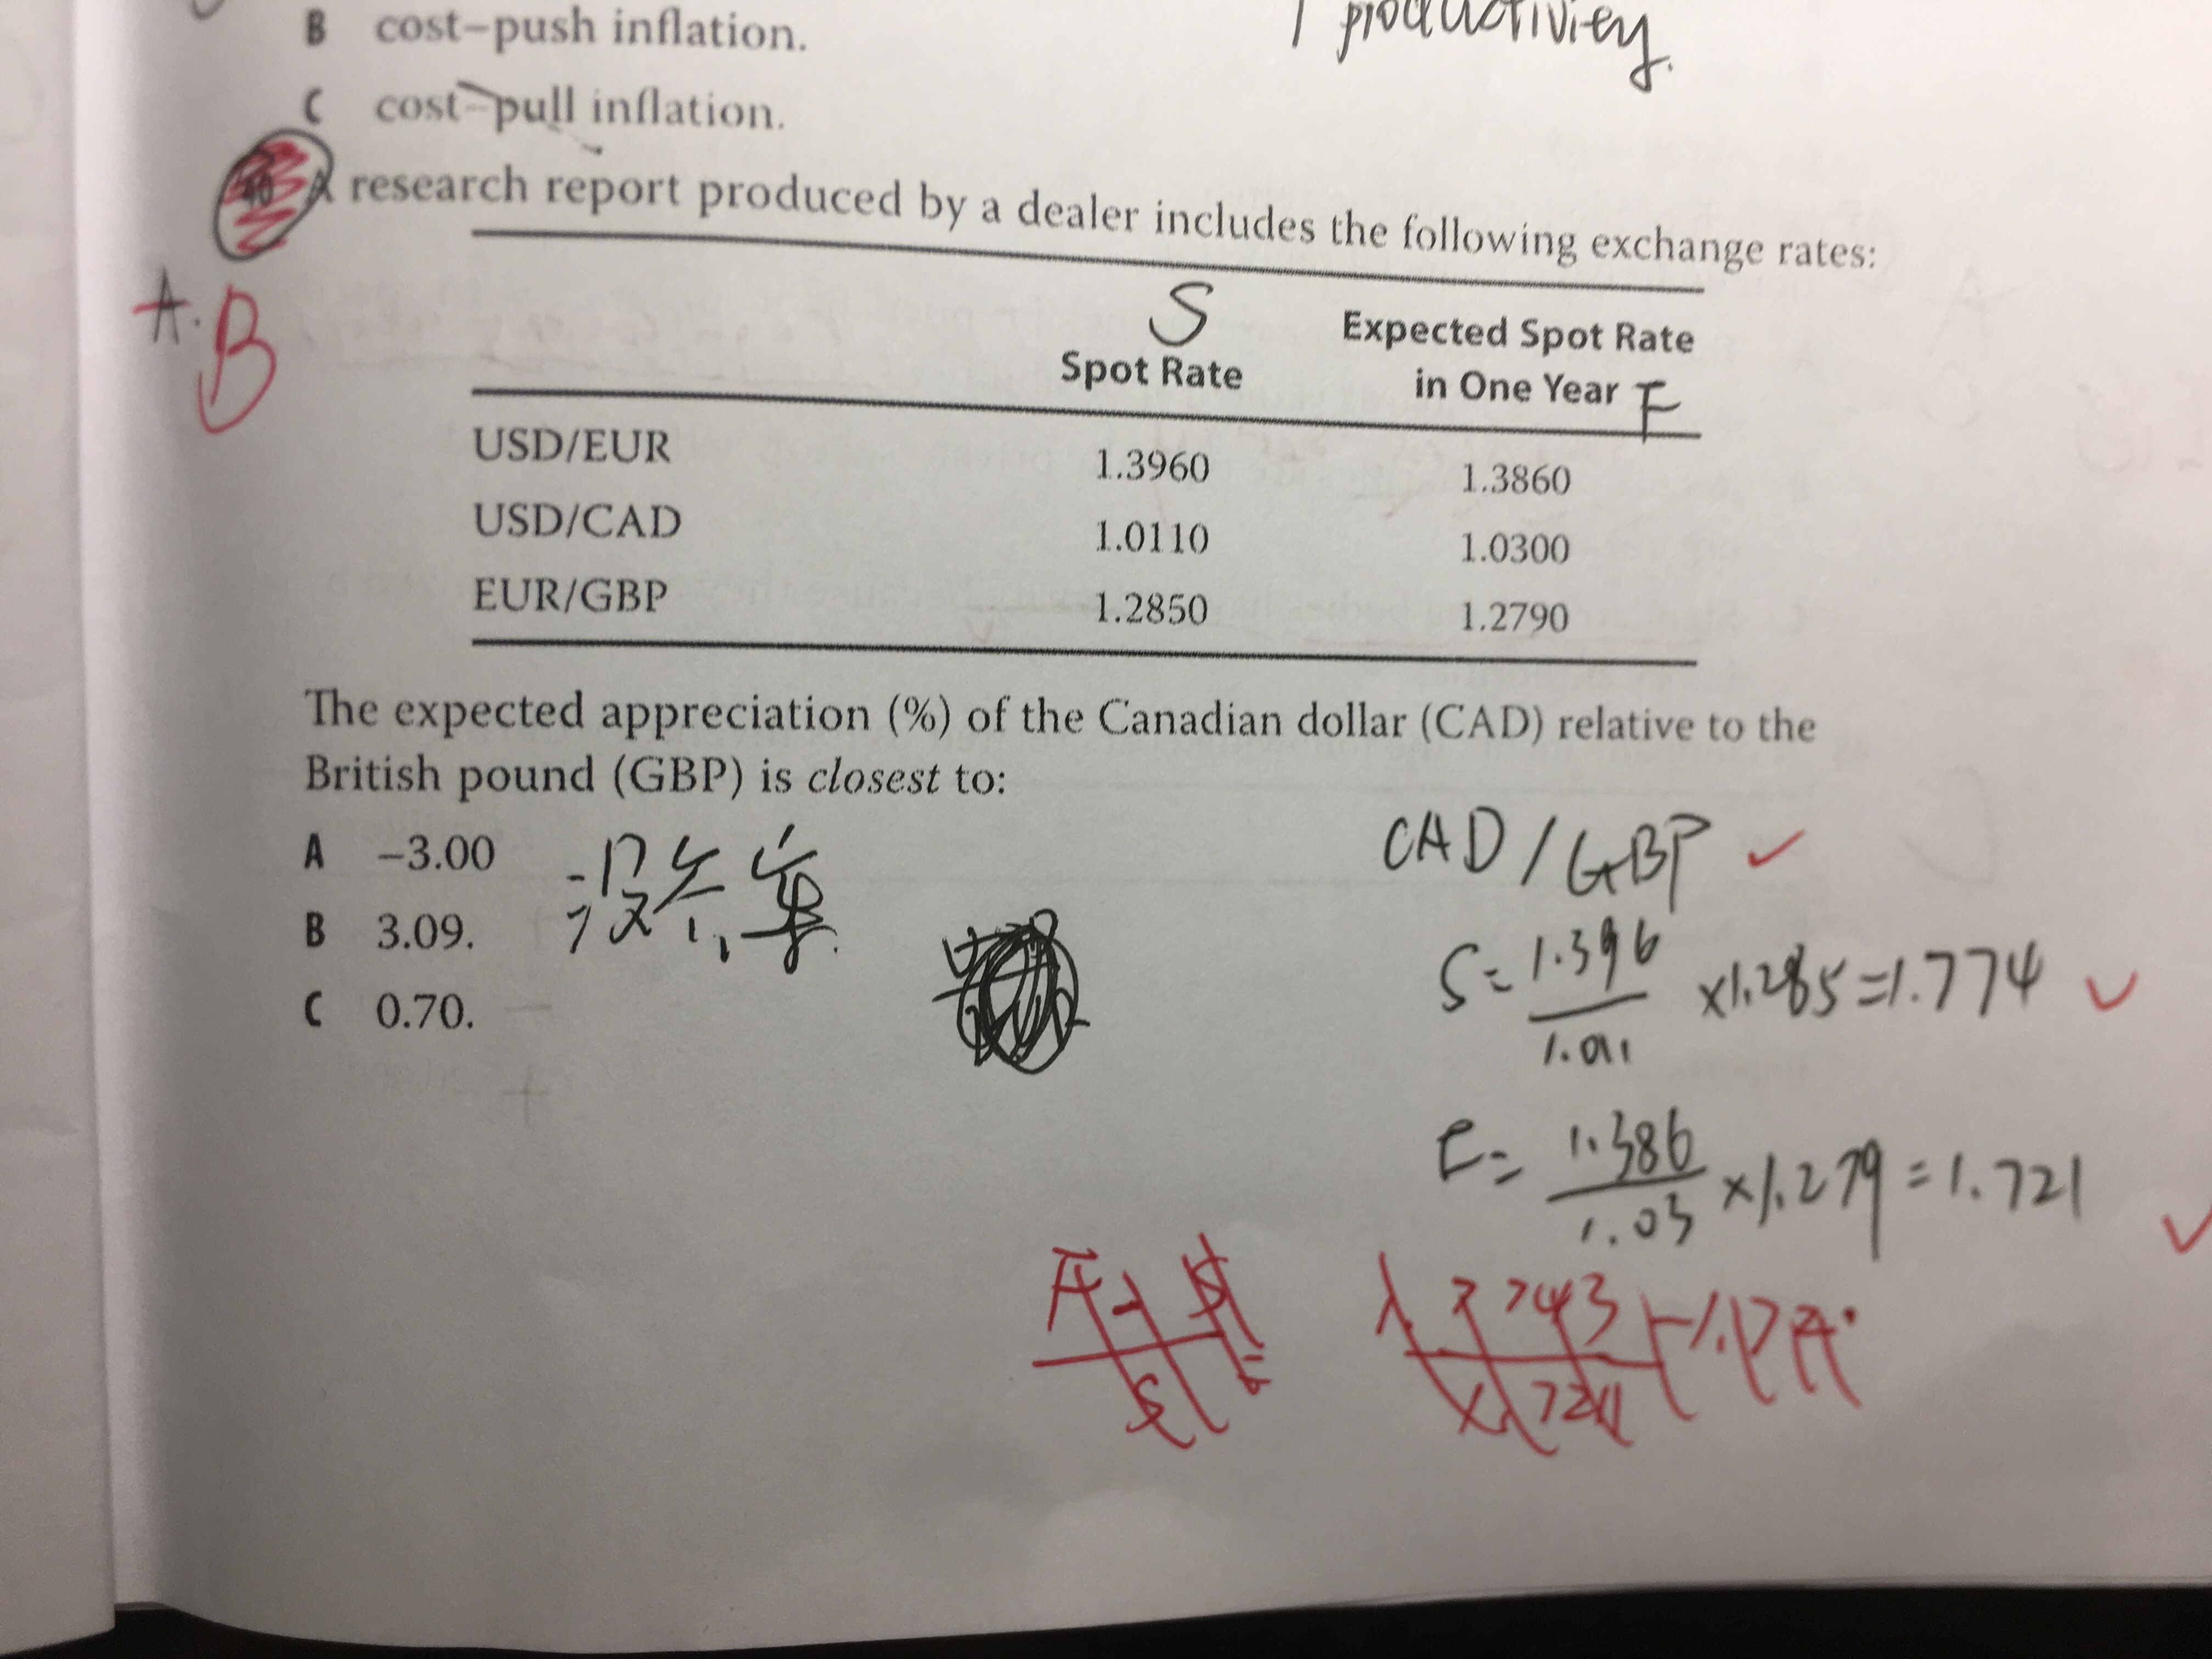 B cost–push inflation.
productivity.
C cost–pull inflation.
40 A research report produced by a dealer includes the following exchange rates:
A. B
S
Spot Rate
Expected Spot Rate
in One Year F
USD/EUR 1.3960 1.3860
USD/CAD 1.0110 1.0300
EUR/GBP 1.2850 1.2790
The expected appreciation (%) of the Canadian dollar (CAD) relative to the
British pound (GBP) is closest to:
A –3.00
B 3.09.
C 0.70.
CAD/GBP
S= 1.396/1.011 ×1.285=1.774
F= 1.386/1.03 ×1.279=1.721